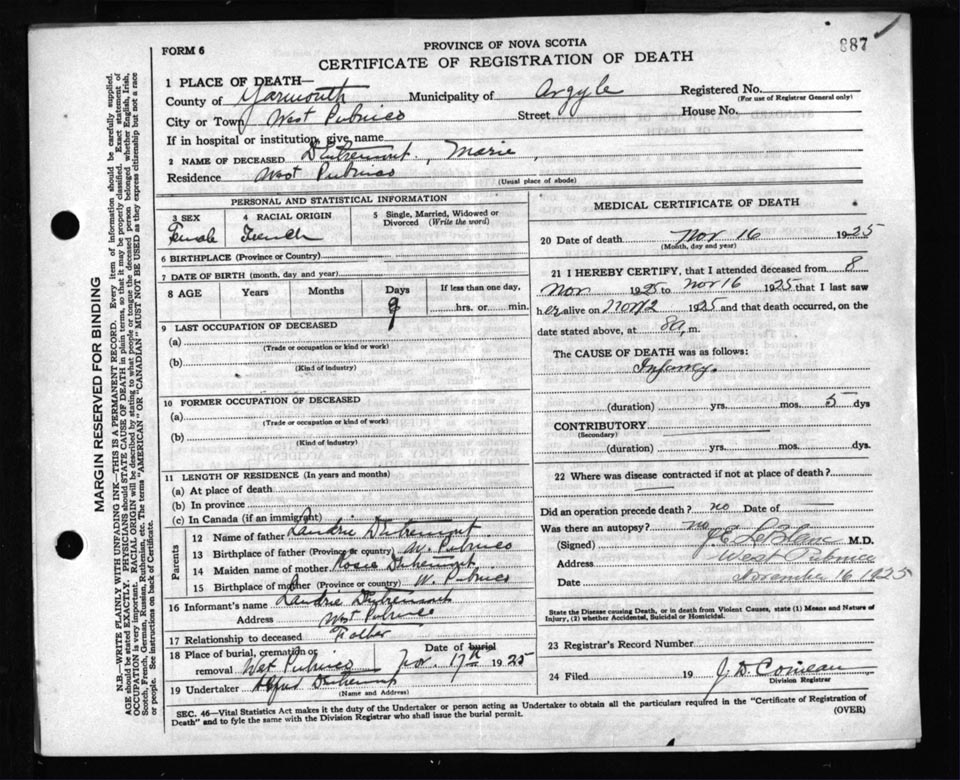 887
FORM 6
PROVINCE OF NOVA SCOTIA
CERTIFICATE OF REGISTRATION OF DEATH
1 PLACE OF DEATH—
County of Yarmouth Municipality of Argyle Registered No.
(For use of Registrar General only)
City or Town West Pubnico Street House No.
If in hospital or institution, give name
2 NAME OF DECEASED D'Entremont, Marie,
Residence West Pubnico
(Usual place of abode)
PERSONAL AND STATISTICAL INFORMATION
3 SEX Female
4 RACIAL ORIGIN French
5 Single, Married, Widowed or Divorced (Write the word)
6 BIRTHPLACE (Province or Country)
7 DATE OF BIRTH (month, day and year)
8 AGE Years Months Days If less than one day,
9 hrs. or min.
9 LAST OCCUPATION OF DECEASED
(a)
(Trade or occupation or kind or work)
(b)
(Kind of industry)
10 FORMER OCCUPATION OF DECEASED
(a)
(Trade or occupation or kind or work)
(b)
(Kind of industry)
11 LENGTH OF RESIDENCE (In years and months)
(a) At place of death
(b) In province
(c) In Canada (if an immigrant)
Parents
12 Name of father Landrie D'Entremont
13 Birthplace of father (Province or country) W. Pubnico
14 Maiden name of mother Rosie D'Entremont
15 Birthplace of mother (Province or country) W. Pubnico
16 Informant's name Landrie D'Entremont
Address West Pubnico
17 Relationship to deceased Father
18 Place of burial, cremation or removal West Pubnico Date of burial Nov. 17th 1925
19 Undertaker Alfred D'Entremont
(Name and Address)
MEDICAL CERTIFICATE OF DEATH
20 Date of death Nov 16 1925
(Month, day and year)
21 I HEREBY CERTIFY, that I attended deceased from 8
Nov 1925 to Nov 16 1925 that I last saw
her alive on Nov 12 1925 and that death occurred, on the
date stated above, at 8 a. m.
The CAUSE OF DEATH was as follows:
Infancy.
(duration) yrs. mos. 5 dys
CONTRIBUTORY
(Secondary)
(duration) yrs. mos. dys.
22 Where was disease contracted if not at place of death?
Did an operation precede death? no Date of
Was there an autopsy? no
(Signed) J E LeBlanc M.D.
Address West Pubnico
Date November 16 1925
State the Disease causing Death, or in death from Violent Causes, state (1) Means and Nature of
Injury, (2) whether Accidental, Suicidal or Homicidal.
23 Registrar's Record Number
24 Filed 19 J. D. Comeau
Division Registrar
SEC. 46—Vital Statistics Act makes it the duty of the Undertaker or person acting as Undertaker to obtain all the particulars required in the "Certificate of Registration of
Death" and to fyle the same with the Division Registrar who shall issue the burial permit.
(OVER)
MARGIN RESERVED FOR BINDING
N.B.—WRITE PLAINLY WITH UNFADING INK—THIS IS A PERMANENT RECORD. Every item of information should be carefully supplied.
AGE should be stated EXACTLY. PHYSICIANS should STATE CAUSE OF DEATH in plain terms, so that it may be properly classified. Exact statement of
OCCUPATION is very important. RACIAL ORIGIN will be described by stating to what people or tongue the deceased person belonged whether English, Irish,
Scotch, French, German, Russian, Ruthenian, etc. The terms "AMERICAN" OR "CANADIAN" MUST NOT BE USED as they express citizenship but not a race
or people. See instructions on back of Certificate.